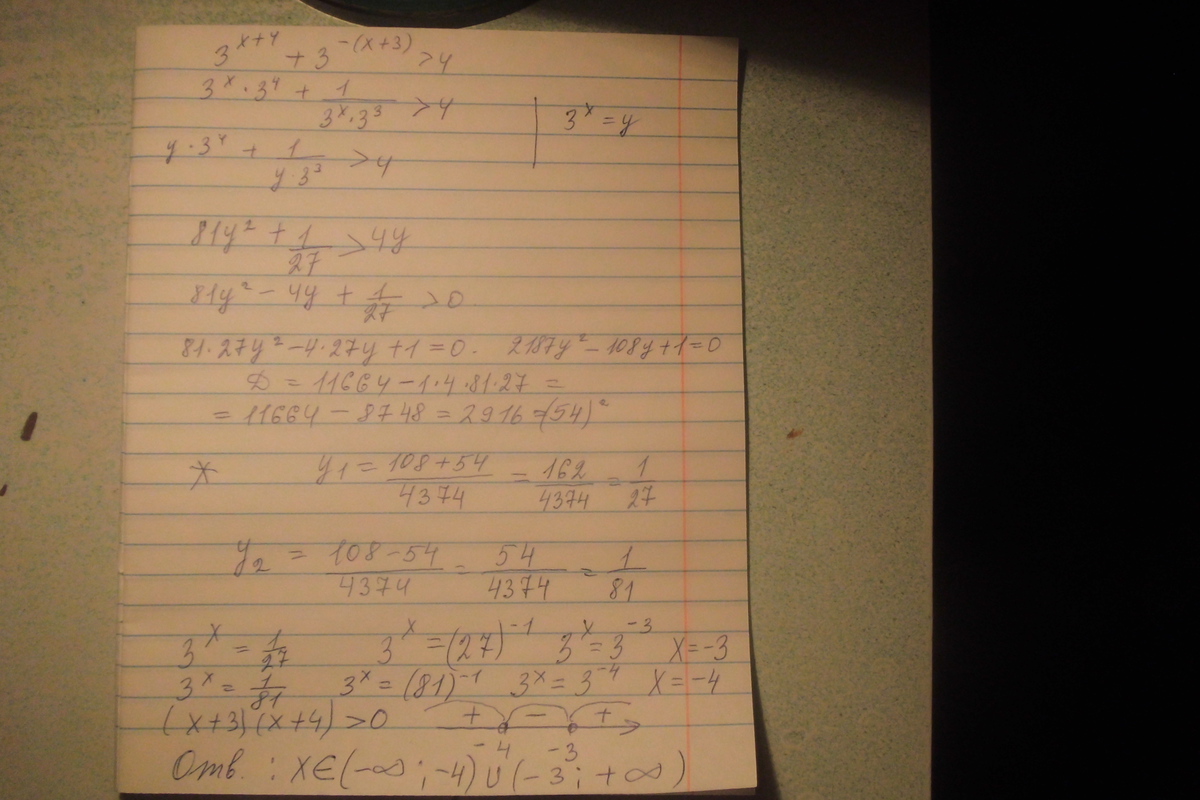 3^(x+4) + 3^(-(x+3)) > 4
3^x · 3^4 + 1/(3^x · 3^3) > 4 | 3^x = y
y · 3^4 + 1/(y · 3^3) > 4
81y² + 1/27 > 4y
81y² - 4y + 1/27 > 0
81·27y² - 4·27y + 1 = 0. 2187y² - 108y + 1 = 0
D = 11664 - 1·4·81·27 =
= 11664 - 8748 = 2916 = (54)²
y₁ = (108+54)/4374 = 162/4374 = 1/27
y₂ = (108-54)/4374 = 54/4374 = 1/81
3^x = 1/27 3^x = (27)^-1 3^x = 3^-3 x = -3
3^x = 1/81 3^x = (81)^-1 3^x = 3^-4 x = -4
(x+3)(x+4) > 0 + - +
-4 -3
Отв. : x ∈ (-∞ ; -4) ∪ (-3 ; +∞)